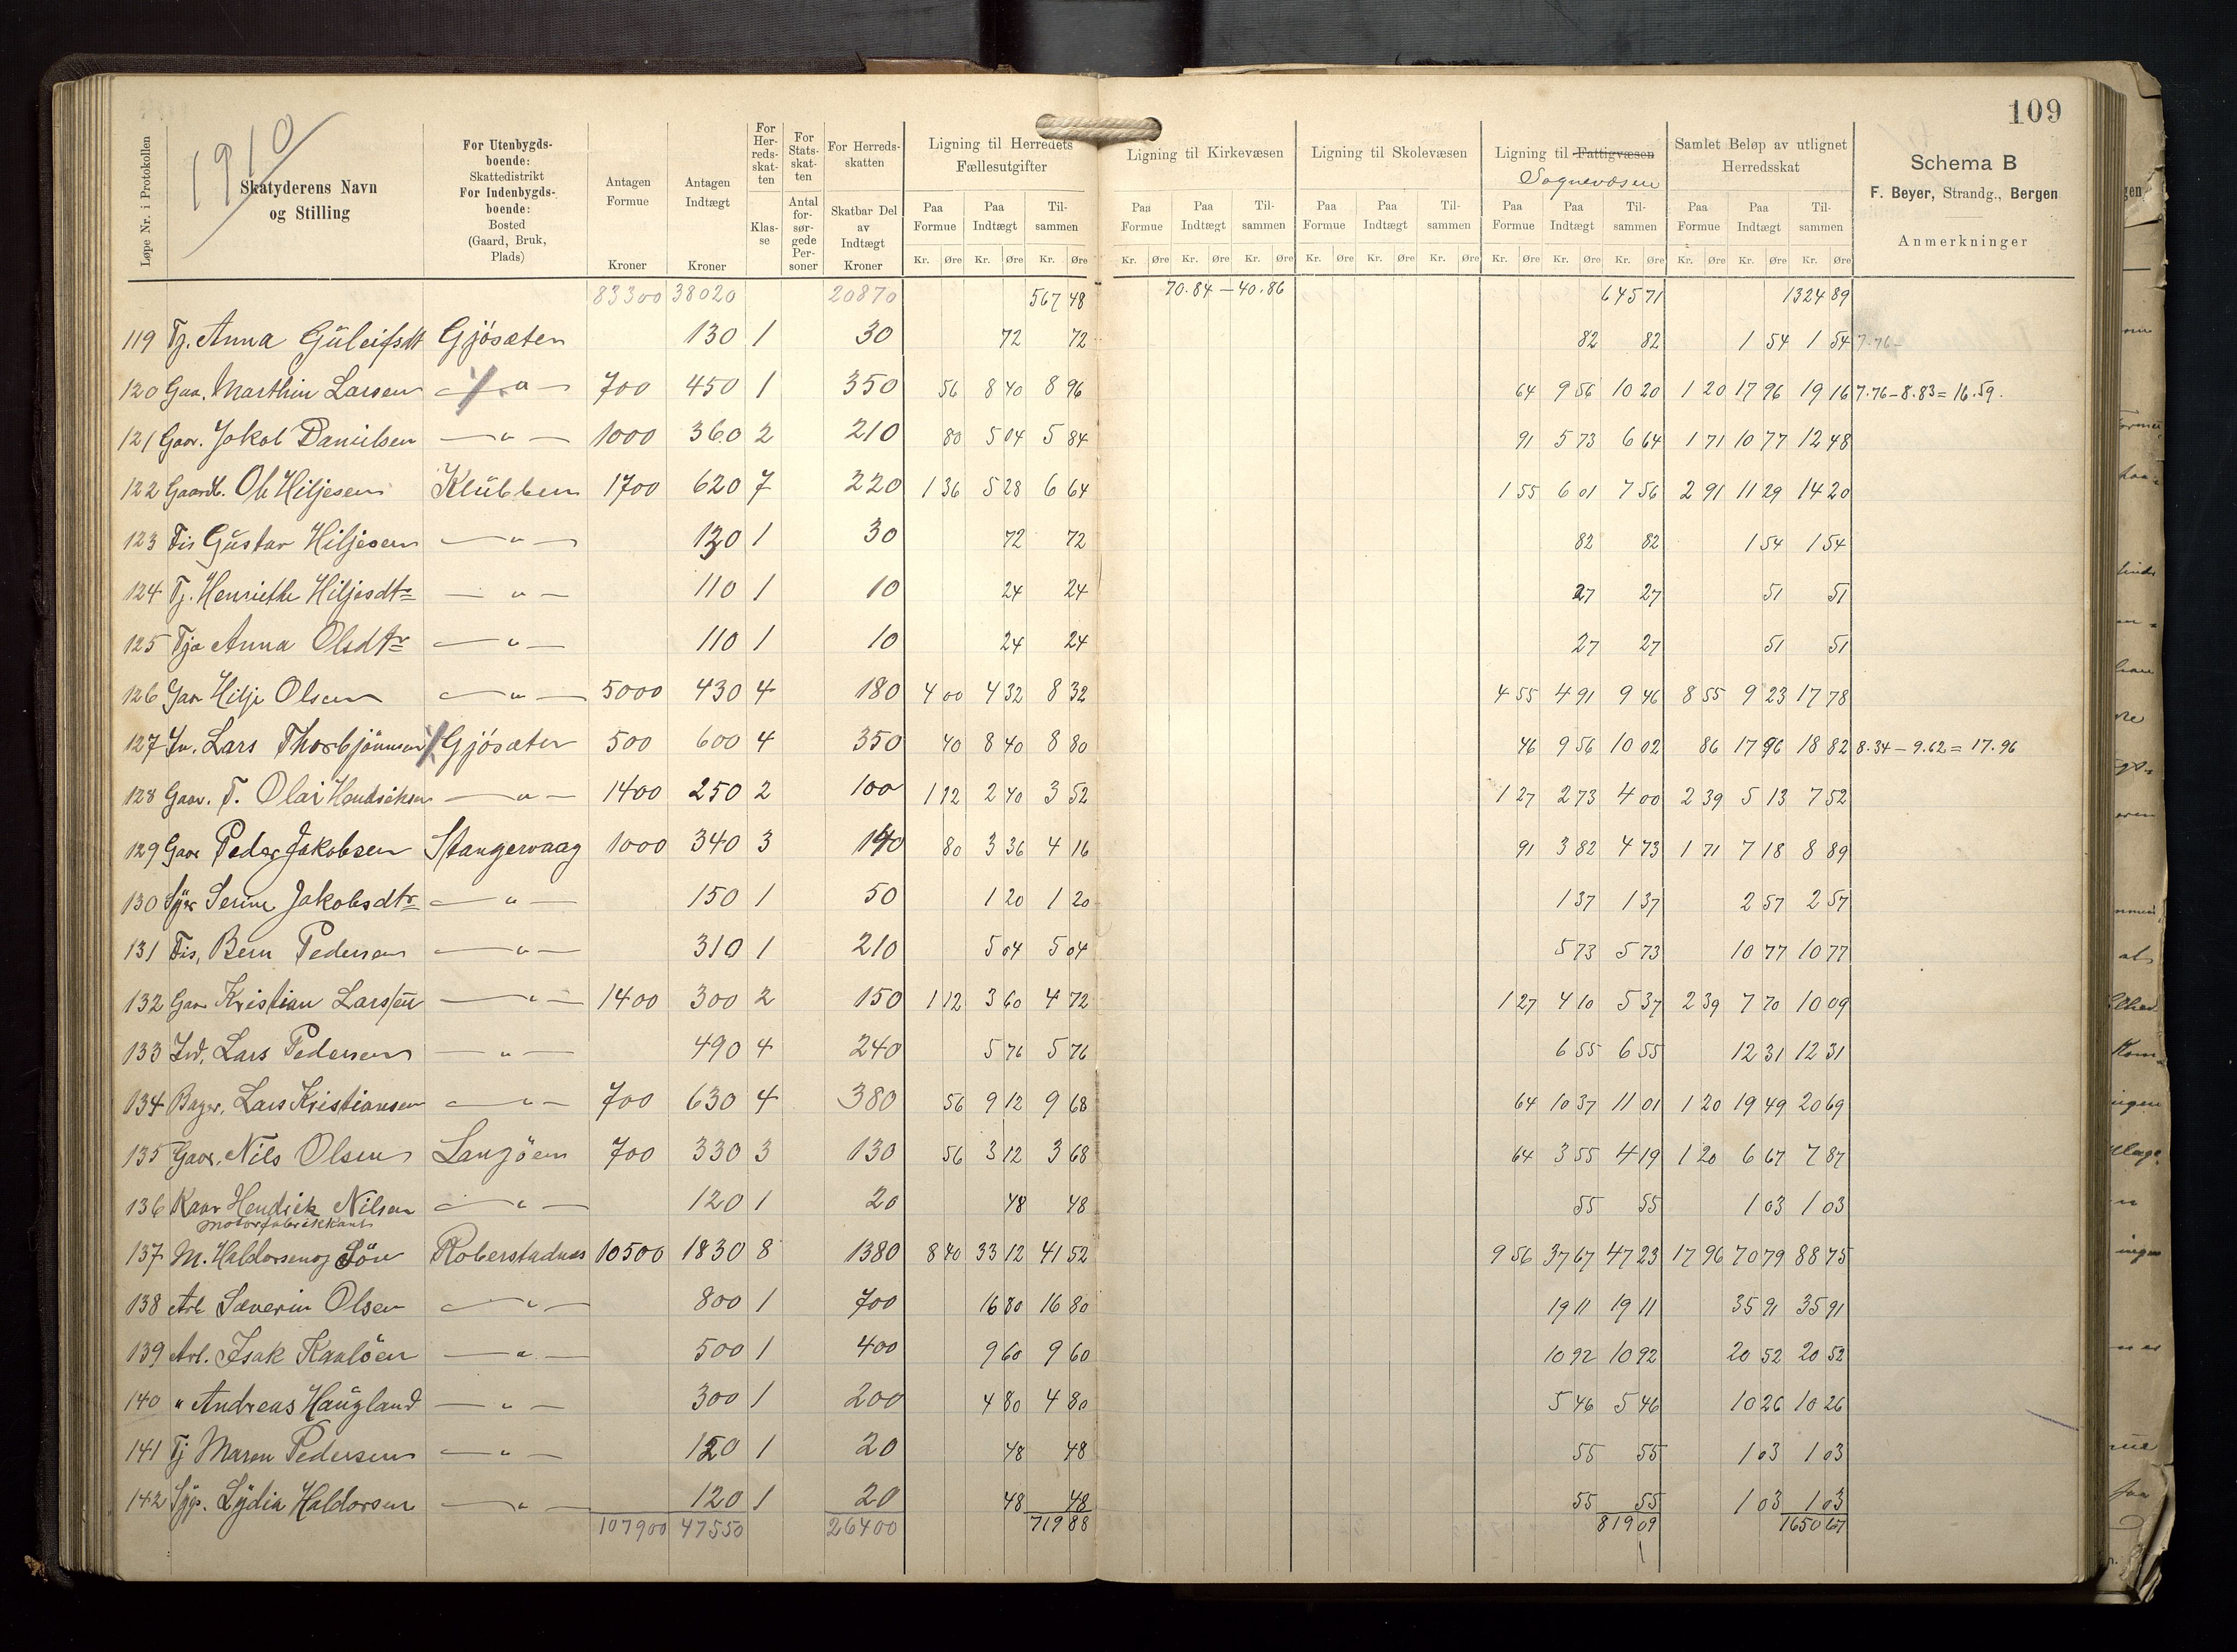 109
1910
Løpe Nr. i Protokollen
Skatyderens Navn og Stilling
For Utenbygds-boende: Skattedistrikt For Indenbygds-boende: Bosted (Gaard, Bruk, Plads)
Antagen Formue Kroner
Antagen Indtægt Kroner
For Herreds-skatten Klasse
For Stats-skatten Antal forsørgede Personer
For Herreds-skatten Skatbar Del av Indtægt Kroner
Ligning til Herredets Fællesutgifter
Ligning til Kirkevæsen
Ligning til Skolevæsen
Ligning til Fattigvæsen Sognevæsen
Samlet Beløp av utlignet Herredsskat
Paa Formue Paa Indtægt Tilsammen
Kr. Øre Kr. Øre Kr. Øre
Schema B
F. Beyer, Strandg., Bergen
Anmerkninger
83300 38020 20870 567 48 70.84 — 40.86 645 71 1324 89
119 Tj. Anna Guleifsdt Gjösæter 130 1 30 72 72 82 82 1 54 1 54 7.76-
120 Gaa. Marthin Larsen — " — 700 450 1 350 56 8 40 8 96 64 9 56 10 20 1 20 17 96 19 16 7.76 - 8.83 = 16.59.
121 Gaar. Jakob Danielsen — " — 1000 360 2 210 80 5 04 5 84 91 5 73 6 64 1 71 10 77 12 48
122 Gaardb. Ole Hiljesen Klubben 1700 620 7 220 1 36 5 28 6 64 1 55 6 01 7 56 2 91 11 29 14 20
123 Fis Gustav Hiljesen — " — 130 1 30 72 72 82 82 1 54 1 54
124 Tj. Henriethe Hiljesdtr — " — 110 1 10 24 24 27 27 51 51
125 Tja Anna Olsdtr — " — 110 1 10 24 24 27 27 51 51
126 Gaar Hilje Olsen — " — 5000 430 4 180 4 00 4 32 8 32 4 55 4 91 9 46 8 55 9 23 17 78
127 Lars Thorbjönnsen Gjösæter 500 600 4 350 40 8 40 8 80 46 9 56 10 02 86 17 96 18 82 8.34 - 9.62 = 17.96
128 Gaar. T. Olai Hendriksen — " — 1400 250 2 100 1 12 2 40 3 52 1 27 2 73 4 00 2 39 5 13 7 52
129 Gaar Peder Jakobsen Stangervaag 1000 340 3 140 80 3 36 4 16 91 3 82 4 73 1 71 7 18 8 89
130 Syer Serine Jakobsdtr — " — 150 1 50 1 20 1 20 1 37 1 37 2 57 2 57
131 Fis, Bern Pedersen — " — 310 1 210 5 04 5 04 5 73 5 73 10 77 10 77
132 Gaar Kristian Larssen — " — 1400 300 2 150 1 12 3 60 4 72 1 27 4 10 5 37 2 39 7 70 10 09
133 Ind. Lars Pedersen — " — 490 4 240 5 76 5 76 6 55 6 55 12 31 12 31
134 Bager, Lars Kristiansen — " — 700 630 4 380 56 9 12 9 68 64 10 37 11 01 1 20 19 49 20 69
135 Gaar. Nils Olsen Langöen 700 330 3 130 56 3 12 3 68 64 3 55 4 19 1 20 6 67 7 87
136 Kaar Hendrik Nilsen — " — 120 1 20 48 48 55 55 1 03 1 03
Motorfabrikkant
137 M. Haldorsen og Sön Roberstadnes 10500 1830 8 1380 8 40 33 12 41 52 9 56 37 67 47 23 17 96 70 79 88 75
138 Arb Severin Olsen — " — 800 1 700 16 80 16 80 19 11 19 11 35 91 35 91
139 Arb. Isak Kanlöen — " — 500 1 400 9 60 9 60 10 92 10 92 20 52 20 52
140 " Andreas Haugland — " — 300 1 200 4 80 4 80 5 46 5 46 10 26 10 26
141 Tj Maren Pedersen — " — 120 1 20 48 48 55 55 1 03 1 03
142 Syp. Lydia Haldorsen — " — 120 1 20 48 48 55 55 1 03 1 03
107900 47550 26400 719 88 819 09 1650 67